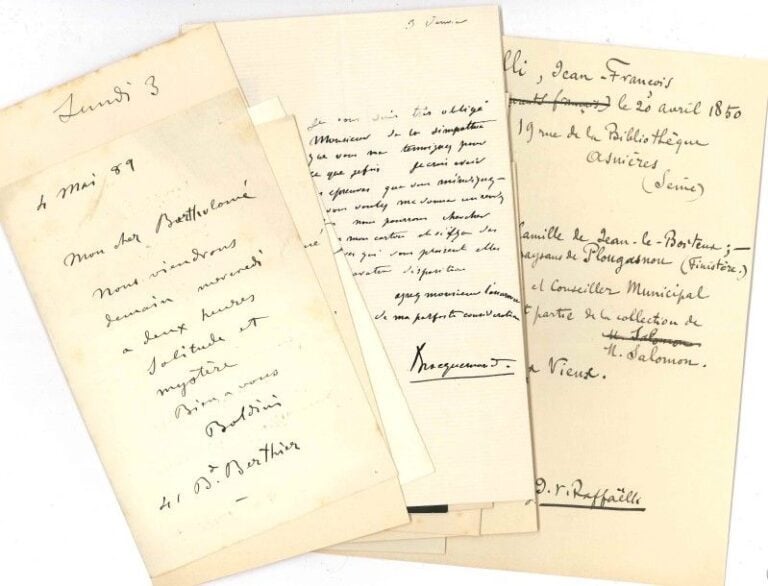 Lundi 3
4 Mai 89
Mon cher Bartholomé
Nous viendrons
demain mercredi
a deux heures
Solitude et
mystère
Bien a vous
Boldini
41 Bd Berthier
Je vous suis très obligé
Monsieur de la simpathie
que vous me temoignez pour
ce que je fais
epreuves que vous
vous voulez me donner un
nous pourrons chercher
mon carton et
qui vous plaisent elles
disposition
agréez monsieur l'assurance
de ma parfaite consideration
Bracquemond.
lli, Jean-François
français) le 20 avril 1850
19 rue de la Bibliothèque
Asnières
(Seine)
famille de Jean-le-Boiteux;—
paysans de Plougasnou (Finistère.)
et Conseiller Municipal
t partie de la collection de
M. Salomon
M. Salomon.
Vieux.
J. F. Raffaëlli